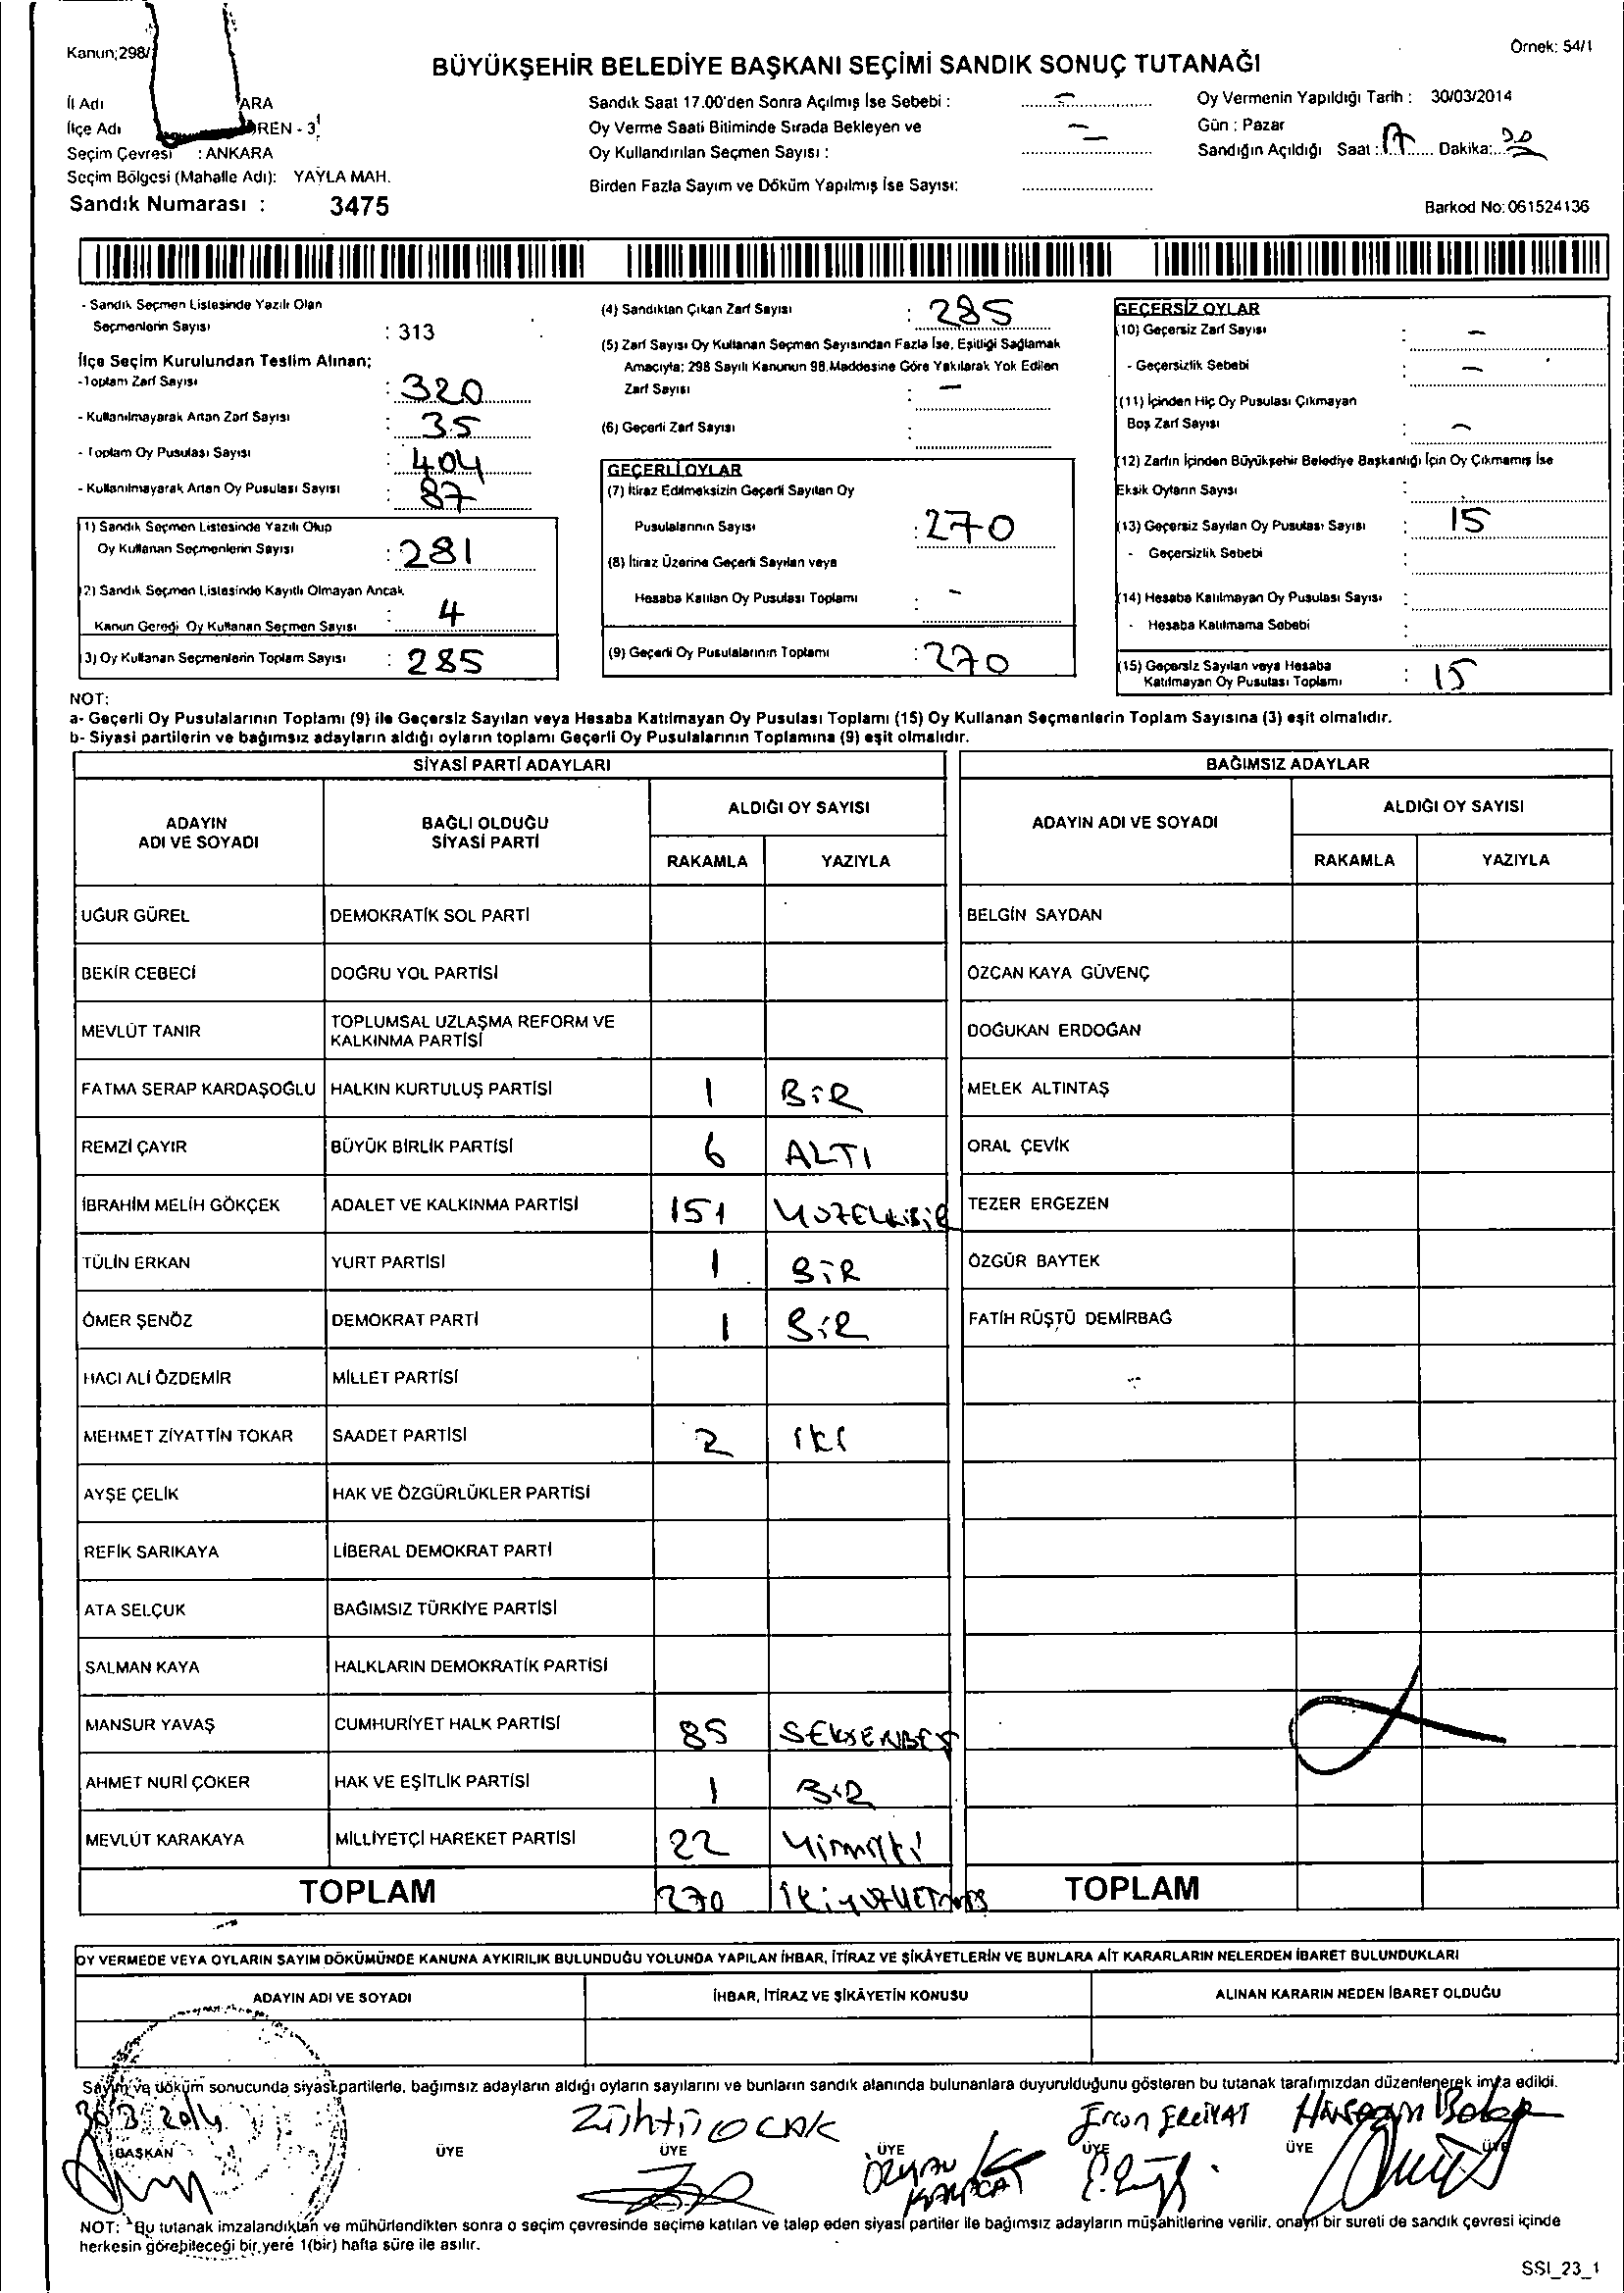 Kanun;298/
Örnek: 54/1
BÜYÜKŞEHİR BELEDİYE BAŞKANI SEÇİMİ SANDIK SONUÇ TUTANAĞI
İl Adı ARA
İlçe Adı REN - 3
Seçim Çevresi : ANKARA
Seçim Bölgesi (Mahalle Adı): YAYLA MAH.
Sandık Numarası : 3475
Sandık Saat 17.00'den Sonra Açılmış İse Sebebi : –
Oy Verme Saati Bitiminde Sırada Bekleyen ve
Oy Kullandırılan Seçmen Sayısı : –
Birden Fazla Sayım ve Döküm Yapılmış İse Sayısı:
Oy Vermenin Yapıldığı Tarih : 30/03/2014
Gün : Pazar
Sandığın Açıldığı Saat : 17 Dakika:
Barkod No: 061524136
- Sandık Seçmen Listesinde Yazılı Olan
Seçmenlerin Sayısı : 313
İlçe Seçim Kurulundan Teslim Alınan;
-Toplam Zarf Sayısı : 320
- Kullanılmayarak Artan Zarf Sayısı : 35
- Toplam Oy Pusulası Sayısı : 404
- Kullanılmayarak Artan Oy Pusulası Sayısı : 87
1) Sandık Seçmen Listesinde Yazılı Olup
Oy Kullanan Seçmenlerin Sayısı : 281
2) Sandık Seçmen Listesinde Kayıtlı Olmayan Ancak
Kanun Gereği Oy Kullanan Seçmen Sayısı : 4
3) Oy Kullanan Seçmenlerin Toplam Sayısı : 285
(4) Sandıktan Çıkan Zarf Sayısı : 285
(5) Zarf Sayısı Oy Kullanan Seçmen Sayısından Fazla İse, Eşitliği Sağlamak
Amacıyla; 298 Sayılı Kanunun 98.Maddesine Göre Yakılarak Yok Edilen
Zarf Sayısı : –
(6) Geçerli Zarf Sayısı :
GEÇERLİ OYLAR
(7) İtiraz Edilmeksizin Geçerli Sayılan Oy
Pusulalarının Sayısı : 270
(8) İtiraz Üzerine Geçerli Sayılan veya
Hesaba Katılan Oy Pusulası Toplamı : -
(9) Geçerli Oy Pusulalarının Toplamı : 270
GEÇERSİZ OYLAR
(10) Geçersiz Zarf Sayısı : –
- Geçersizlik Sebebi : –
(11) İçinden Hiç Oy Pusulası Çıkmayan
Boş Zarf Sayısı : –
(12) Zarfın İçinden Büyükşehir Belediye Başkanlığı İçin Oy Çıkmamış İse
Eksik Oyların Sayısı :
(13) Geçersiz Sayılan Oy Pusulası Sayısı : 15
- Geçersizlik Sebebi :
(14) Hesaba Katılmayan Oy Pusulası Sayısı :
- Hesaba Katılmama Sebebi :
(15) Geçersiz Sayılan veya Hesaba
Katılmayan Oy Pusulası Toplamı : 15
NOT:
a- Geçerli Oy Pusulalarının Toplamı (9) ile Geçersiz Sayılan veya Hesaba Katılmayan Oy Pusulası Toplamı (15) Oy Kullanan Seçmenlerin Toplam Sayısına (3) eşit olmalıdır.
b- Siyasi partilerin ve bağımsız adayların aldığı oyların toplamı Geçerli Oy Pusulalarının Toplamına (9) eşit olmalıdır.
SİYASİ PARTİ ADAYLARI
ADAYIN ADI VE SOYADI
BAĞLI OLDUĞU SİYASİ PARTİ
ALDIĞI OY SAYISI
RAKAMLA YAZIYLA
UĞUR GÜREL DEMOKRATİK SOL PARTİ
BEKİR CEBECİ DOĞRU YOL PARTİSİ
MEVLÜT TANIR TOPLUMSAL UZLAŞMA REFORM VE
KALKINMA PARTİSİ
FATMA SERAP KARDAŞOĞLU HALKIN KURTULUŞ PARTİSİ 1 BİR
REMZİ ÇAYIR BÜYÜK BİRLİK PARTİSİ 6 ALTI
İBRAHİM MELİH GÖKÇEK ADALET VE KALKINMA PARTİSİ 151 YÜZELLİBİR
TÜLİN ERKAN YURT PARTİSİ 1 BİR
ÖMER ŞENÖZ DEMOKRAT PARTİ 1 BİR
HACI ALİ ÖZDEMİR MİLLET PARTİSİ
MEHMET ZİYATTİN TOKAR SAADET PARTİSİ 2 İKİ
AYŞE ÇELİK HAK VE ÖZGÜRLÜKLER PARTİSİ
REFİK SARIKAYA LİBERAL DEMOKRAT PARTİ
ATA SELÇUK BAĞIMSIZ TÜRKİYE PARTİSİ
SALMAN KAYA HALKLARIN DEMOKRATİK PARTİSİ
MANSUR YAVAŞ CUMHURİYET HALK PARTİSİ 85 SEKSENBEŞ
AHMET NURİ ÇOKER HAK VE EŞİTLİK PARTİSİ 1 BİR
MEVLÜT KARAKAYA MİLLİYETÇİ HAREKET PARTİSİ 22 Yirmiiki
TOPLAM 270 İKİYÜZYETMİŞ
BAĞIMSIZ ADAYLAR
ADAYIN ADI VE SOYADI
ALDIĞI OY SAYISI
RAKAMLA YAZIYLA
BELGİN SAYDAN
ÖZCAN KAYA GÜVENÇ
DOĞUKAN ERDOĞAN
MELEK ALTINTAŞ
ORAL ÇEVİK
TEZER ERGEZEN
ÖZGÜR BAYTEK
FATİH RÜŞTÜ DEMİRBAĞ
TOPLAM
OY VERMEDE VEYA OYLARIN SAYIM DÖKÜMÜNDE KANUNA AYKIRILIK BULUNDUĞU YOLUNDA YAPILAN İHBAR, İTİRAZ VE ŞİKÂYETLERİN VE BUNLARA AİT KARARLARIN NELERDEN İBARET BULUNDUKLARI
ADAYIN ADI VE SOYADI İHBAR, İTİRAZ VE ŞİKÂYETİN KONUSU ALINAN KARARIN NEDEN İBARET OLDUĞU
Sayım ve döküm sonucunda siyasi partilerle, bağımsız adayların aldığı oyların sayılarını ve bunların sandık alanında bulunanlara duyurulduğunu gösteren bu tutanak tarafımızdan düzenlenerek imza edildi.
30.3.2014 Zühtü OCAK
BAŞKAN ÜYE ÜYE ÜYE ÜYE ÜYE ÜYE
NOT: Bu tutanak imzalandıktan ve mühürlendikten sonra o seçim çevresinde seçime katılan ve talep eden siyasi partiler ile bağımsız adayların müşahitlerine verilir, onaylı bir sureti de sandık çevresi içinde
herkesin görebileceği bir yere 1(bir) hafta süre ile asılır.
SSI_23_1